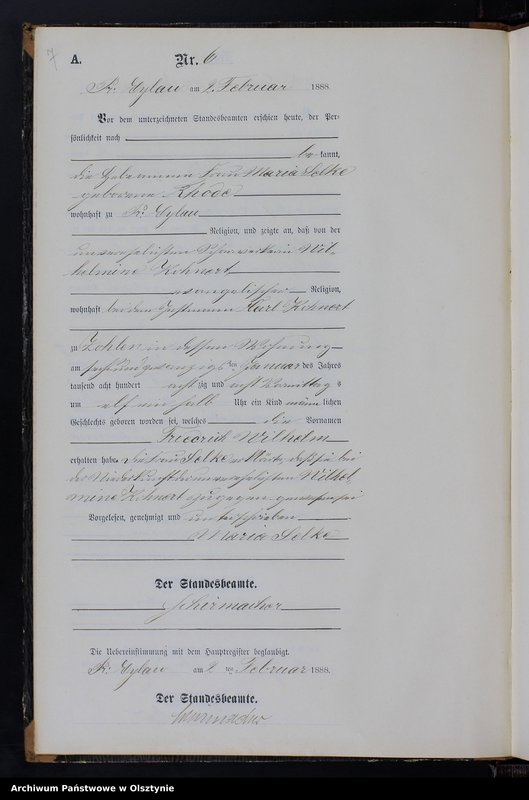 7
A. Nr. 6
Pr. Eylau am 2. Februar 1888.
Vor dem unterzeichneten Standesbeamten erschien heute, der Per-
sönlichkeit nach
be kannt,
die Hebamme Frau Maria Selke
geborene Rhode
wohnhaft zu Pr. Eylau
Religion, und zeigte an, daß von der
unverehelichten Wil-
helmine Kihnert
evangelischer Religion,
wohnhaft bei dem Instmann Karl Kihnert
zu Zohlen in dessen Wohnung
am sechsundzwanzigsten Januar des Jahres
tausend acht hundert achtzig und acht Vormittags
um elf ein halb Uhr ein Kind männlichen
Geschlechts geboren worden sei, welches die Vornamen
Friedrich Wilhelm
erhalten habe. Die Frau Selke erklärte, daß sie bei
der Niederkunft der unverehelichten Wilhel
mine Kihnert zugegen gewesen sei
Vorgelesen, genehmigt und unterschrieben
Maria Selke
Der Standesbeamte.
Schirmacher
Die Uebereinstimmung mit dem Hauptregister beglaubigt.
Pr. Eylau am 2 ten Februar 1888.
Der Standesbeamte.
Schirmacher
Archiwum Państwowe w Olsztynie